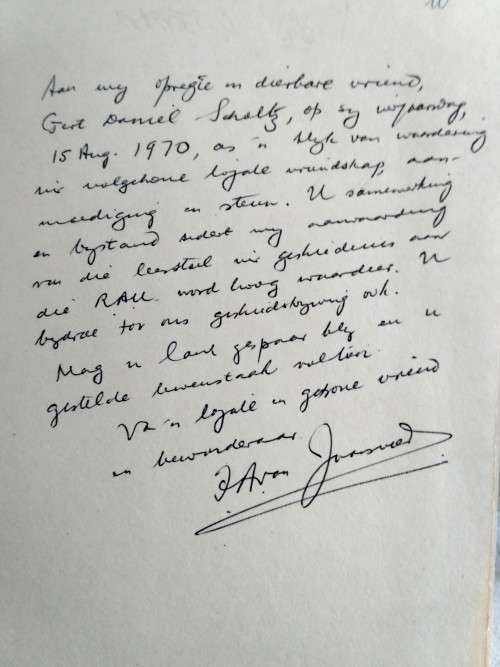 Aan my opregte en dierbare vriend,
Gert Daniël Scholtz, op sy verjaarsdag,
15 Aug. 1970, as 'n blyk van waardering
vir volgehoue lojale vriendskap, aan-
moediging en steun. U samewerking
en bystand sedert my aanvaarding
van die leerstoel vir geskiedenis aan
die RAU word hoog waardeer. U
bydrae tot ons geskiedskrywing ook.
Mag u lank gespaar bly en u
gestelde lewenstaak voltooi.
Van 'n lojale en gehoue vriend
en bewonderaar
F A van Jaarsveld